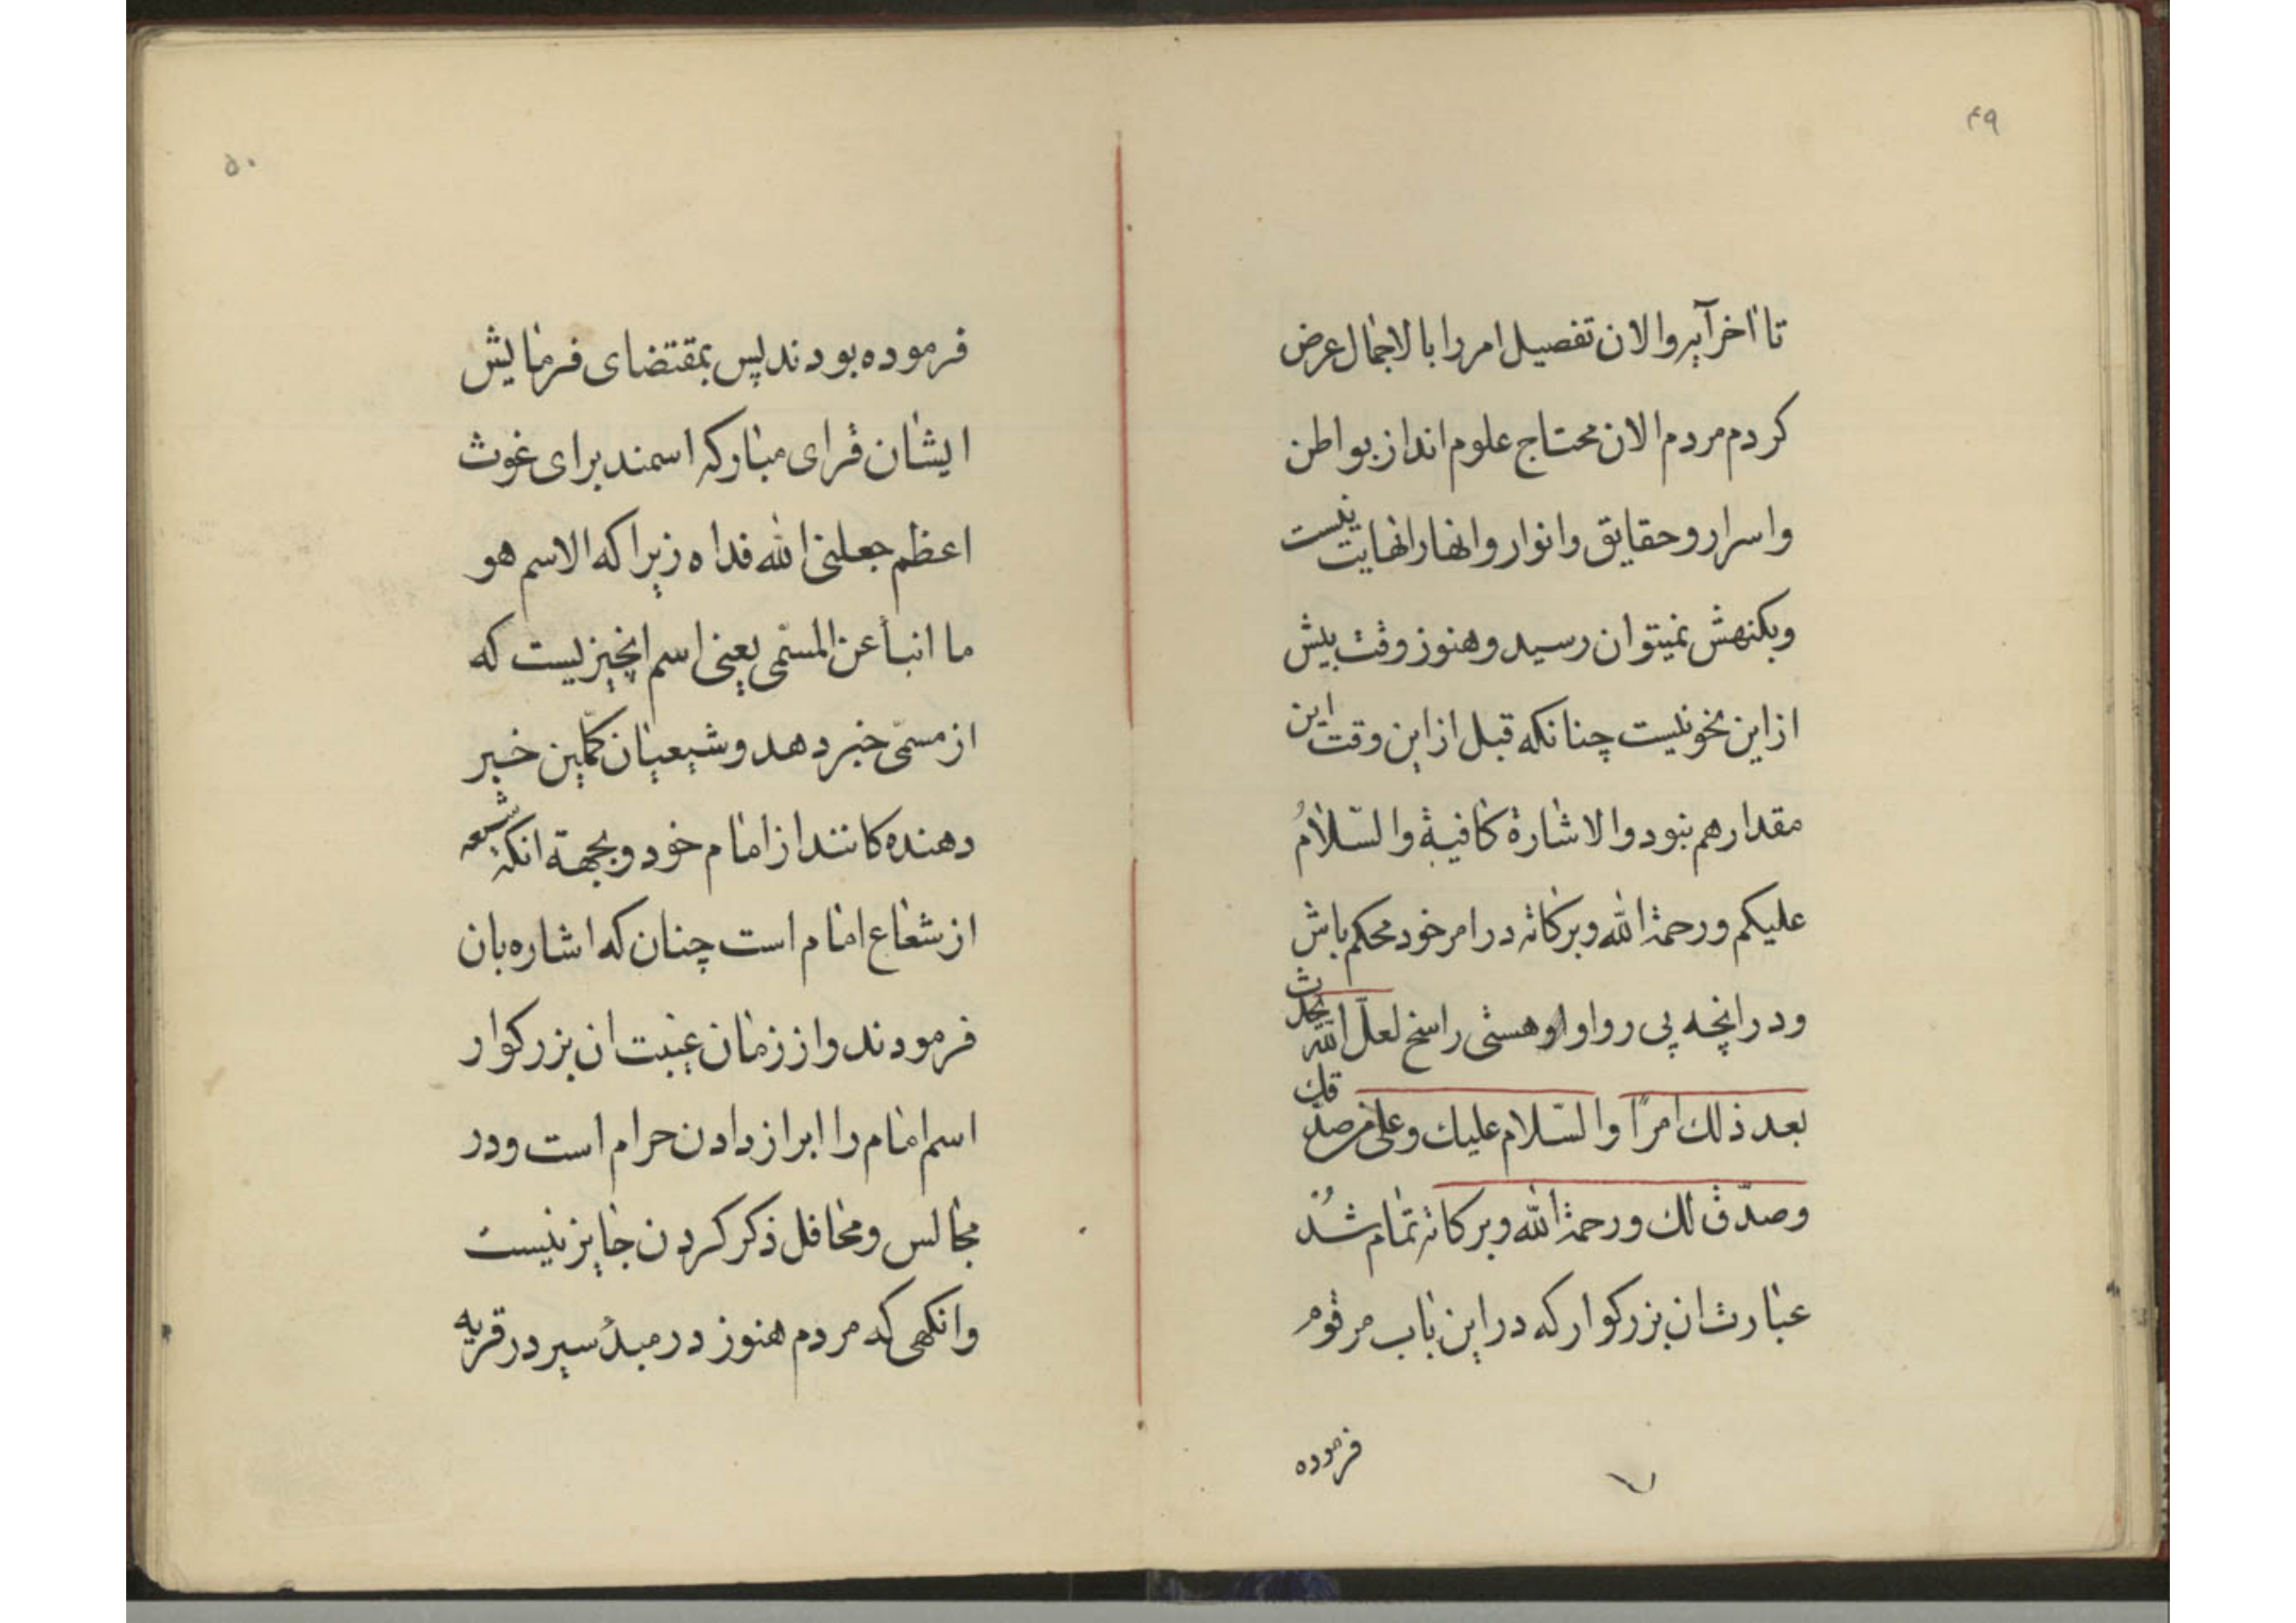 ۴۹
تا اخر آیه والان تفصیل امر را بالاجمال عرض
کردم مردم الان محتاج علوم اند از بواطن
واسرار و حقایق و انوار و انها را نهایت نیست
و بکنهش نمیتوان رسید و هنوز وقت بیش
از این نحو نیست چنانکه قبل از این وقت این
مقدار هم نبود والاشارة کافیة والسّلامُ
علیکم و رحمة الله و برکاته در امر خود محکم باش
و در انچه پی رو او هستی راسخ لعلّ الله یحدث
بعد ذلك امرًا والسّلام علیك و علی من صدّقك
و صدّق لك و رحمة الله و برکاته تمام شُد
عبارت ان بزرکوار که در این باب مرقوم
فرموده
۵۰
فرموده بودند پس بمقتضای فرمایش
ایشان قرای مبارکه اسمند برای غوث
اعظم جعلنی الله فداه زیرا که الاسم هو
ما انبأ عن المسمّی یعنی اسم انچیزیست که
از مسمّی خبر دهد و شیعیان کمّلین خبر
دهنده کانند از امام خود و بجهة انکه شیعه
از شعاع امام است چنان که اشاره بان
فرمودند و از زمان غیبت ان بزرکوار
اسم امام را ابراز دادن حرام است و در
مجالس و محافل ذکر کردن جایز نیست
وانکهی که مردم هنوز در مبدأ سیر در قریه